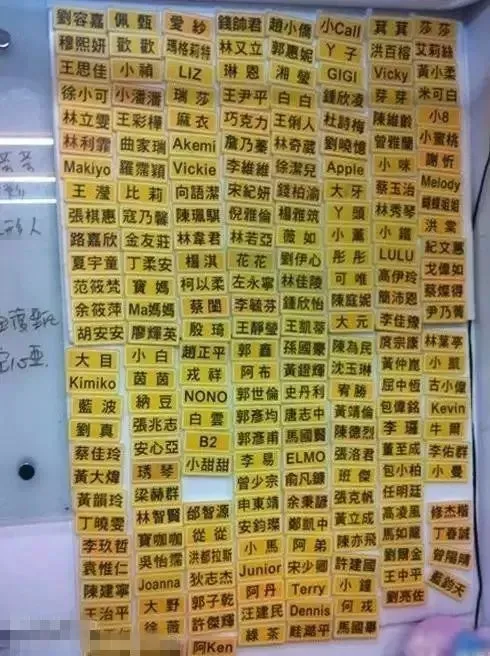 劉容嘉 佩甄 愛紗 錢帥君 趙小僑 小Call 萁萁 莎莎
穆熙妍 歡歡 瑪格莉特 林又立 郭惠妮 丫子 洪百榕 艾莉絲
王思佳 小禎 LIZ 琳恩 湘瑩 GIGI Vicky 黃小柔
徐小可 小潘潘 瑞莎 王尹平 白白 鍾欣凌 芽芽 米可白
林立雯 王彩樺 麻衣 巧克力 王俐人 杜詩梅 陳維齡 小8
林利霏 曲家瑞 Akemi 詹乃蓁 林奇葳 劉曉憶 曾雅蘭 小蜜桃
Makiyo 羅霈穎 Vickie 李維維 徐潔兒 Apple 小咪 謝忻
王瀅 比莉 向語潔 宋紀妍 錢柏渝 大牙 蔡玉治 Melody
張棋惠 寇乃馨 陳珮騏 倪雅倫 楊雅筑 丫頭 林秀琴 蝴蝶姐姐
路嘉欣 金友莊 林韋君 林若亞 薇如 小薰 小鐵 洪棠
夏宇童 丁柔安 楊淇 花花 劉伊心 彤彤 LULU 紀文惠
范筱梵 寶媽 柯以柔 左永寧 林佳陵 可唯 高伊玲 戈偉如
余筱萍 Ma媽媽 蔡閨 李毓芬 鍾欣怡 陳庭妮 簡沛恩 蔡燦得
胡安安 廖輝英 殷琦 王靜瑩 王凱蒂 大元 李佳豫 尹乃菁
大目 小白 趙正平 郭鑫 孫國豪 陳為民 虞宗康 林葉亭
Kimiko 茵茵 戎祥 阿布 黃鐙輝 沈玉琳 黃仲崑 小凱
藍波 納豆 NONO 郭世倫 史丹利 宥勝 屈中恆 古小偉
劉真 張兆志 白雲 郭彥均 唐志中 黃靖倫 包偉銘 Kevin
蔡佳玲 安心亞 B2 郭彥甫 馬國賢 陳德烈 李㼈 牛爾
黃大煒 琇琴 小甜甜 李易 ELMO 張洛君 董至成 李佑群
黃韻玲 梁赫群 曾少宗 俞凡鏞 班傑 包小柏 小曼
丁曉雯 林智賢 邰智源 申東靖 余秉諺 張克帆 任明廷
李玖哲 寶咖咖 從從 安鈞璨 鄭凱中 黃立成 高凌風 修杰楷
袁惟仁 吳怡霈 洪都拉斯 小馬 阿弟 陳亦飛 馬如龍 丁春誠
陳建寧 Joanna 狄志杰 Junior 宋少卿 許建國 劉爾金 曾陽晴
王治平 大野 郭子乾 阿丹 Terry 小鐘 王中平 藍鈞天
徐薇 許傑輝 汪建民 Dennis 何戎 劉亮佐
阿Ken 綠茶 馬國畢